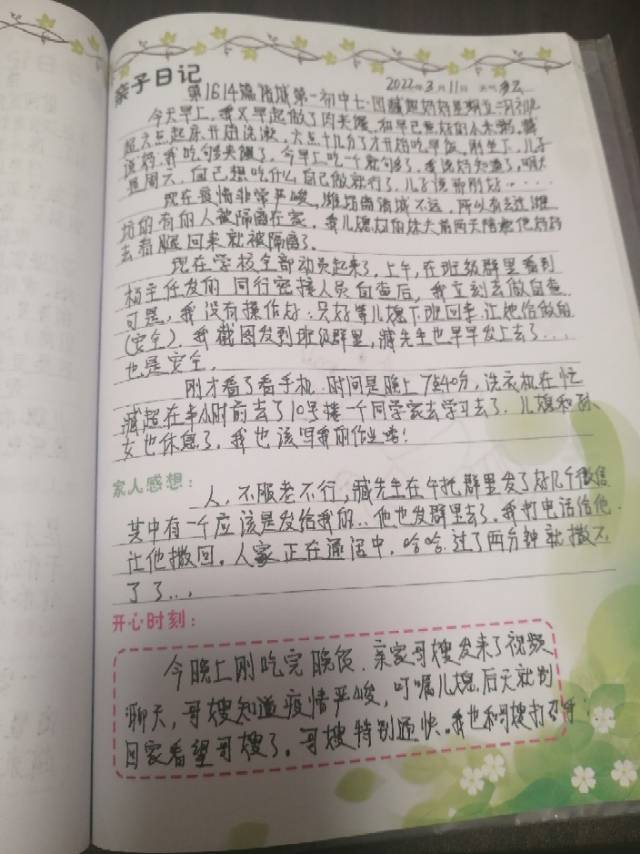 亲子日记
第1614篇 诸城第一初中七·四 臧超妈妈 星期五 2022年3月11日 天气
今天早上,我又早起做了肉夹馍,和早已熬好的小米粥,臧
超六点起床开始洗漱,六点十几分了才开始吃早饭,刚坐下,儿子
说妈,我吃够夹馍了,今早上吃一个就够了,我说妈知道了,明天
是周六,自己想吃什么自己做就行了,儿子说那刚好……
现在疫情非常严峻,潍坊离诸城不远,所以有去过潍
坊的有的人被隔离在家,我儿媳妇的妹夫前两天陪着他妈妈
去看腿回来就被隔离了。
现在学校全部动员起来了,上午,在班级群里看到
杨主任发的 同行密接人员自查后,我立刻去做自查
可是,我没有操作好,只好等儿媳下班回来,让她给做的
(安全),我截图发到班级群里,臧先生也早早发上去了...
也是安全。
刚才看了看手机 时间是晚上7点40分,洗衣机在忙
臧超在半小时前去了10号楼一个同学家去学习去了,儿媳和孙
女也休息了,我也该写我的作业喽!
家人感想:
人,不服老不行,臧先生在午托群里发了好几个微信
其中有一个应该是发给我的..他也发群里去了,我打电话给他
让他撤回,人家正在通话中,哈哈,过了两分钟就撤不
了了...
开心时刻:
今晚上刚吃完晚饭,亲家哥嫂发来了视频
聊天,哥嫂知道疫情严峻,叮嘱儿媳,后天就别
回家看望哥嫂了,哥嫂特别通快。我也和哥嫂打召呼